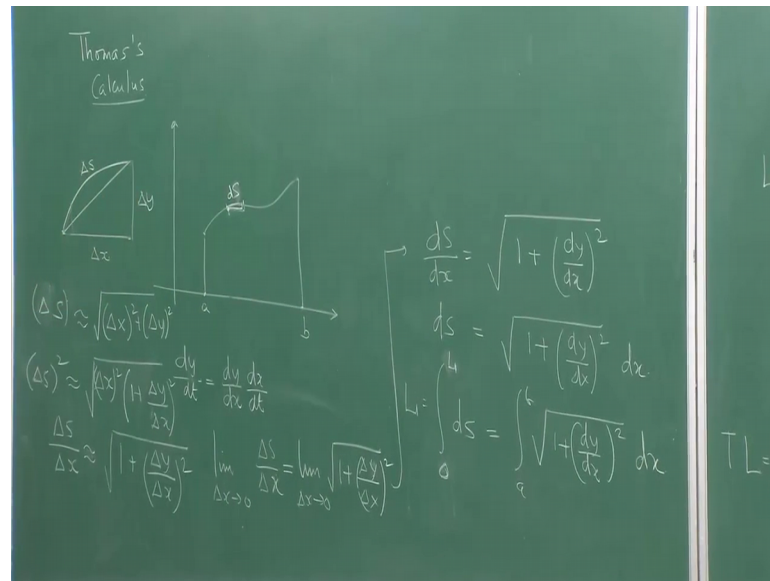 Thomas's
Calculus
Δs
Δy
Δx
ds
a
b
(Δs) ≈ √((Δx)²+(Δy)²)
(Δs)² ≈ √((Δx)²(1+Δy/Δx)²)
dy/dt = dy/dx dx/dt
Δs/Δx ≈ √(1+(Δy/Δx)²)
lim Δx→0 Δs/Δx = lim Δx→0 √(1+(Δy/Δx)²)
ds/dx = √(1+(dy/dx)²)
ds = √(1+(dy/dx)²) dx.
L = ∫₀ᴸ ds = ∫ₐᵇ √(1+(dy/dx)²) dx
L
TL=